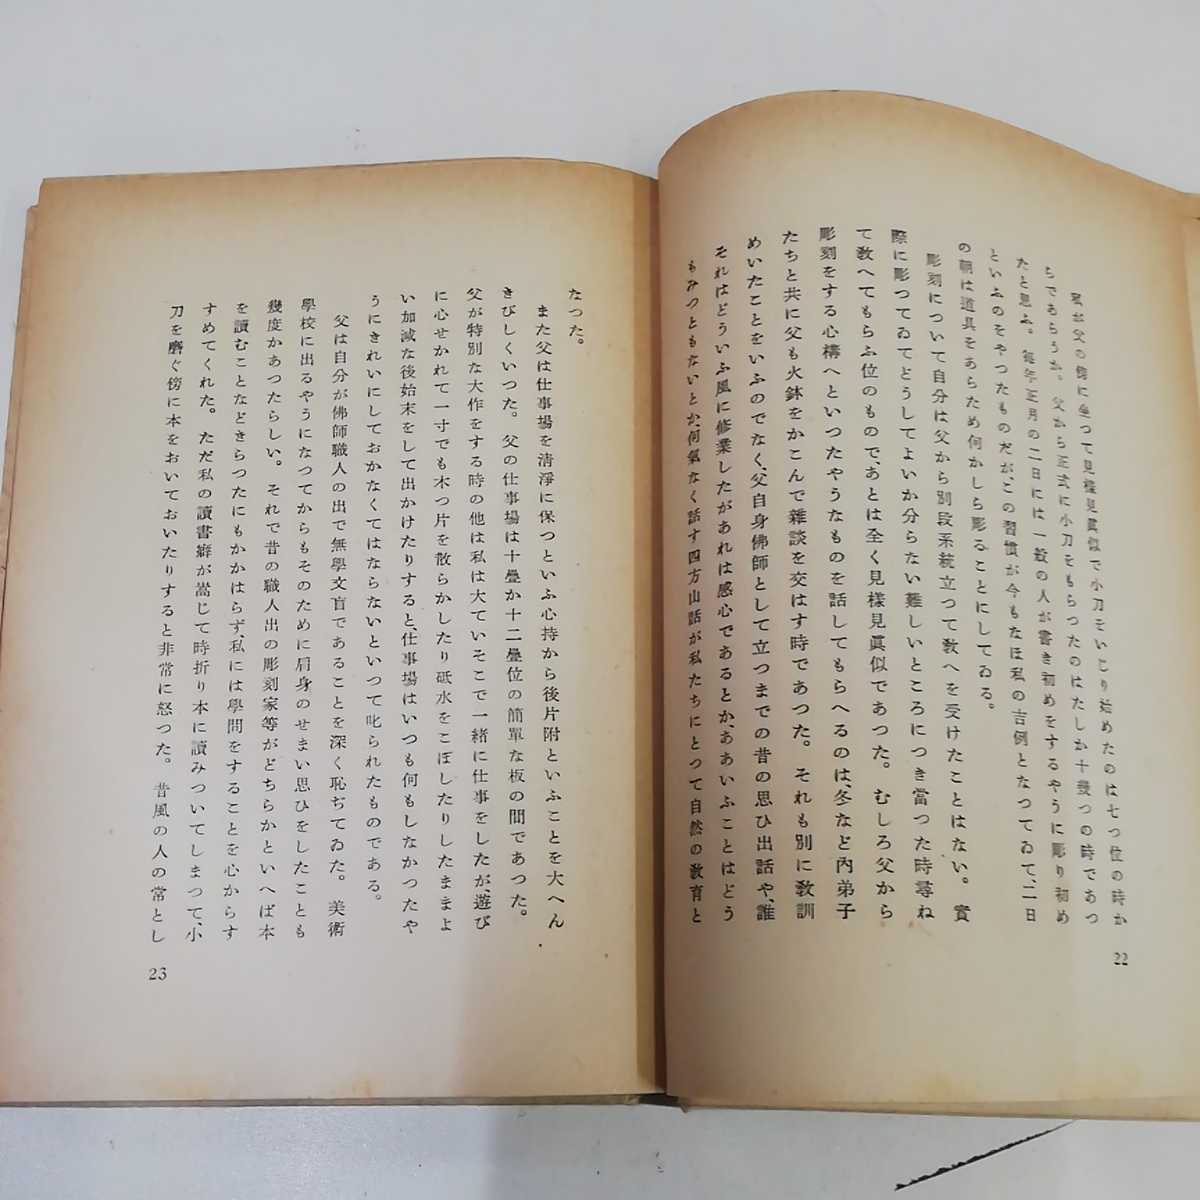 私が父の傍に坐つて見樣見眞似で小刀をいじり始めたのは七つ位の時か
らであらうか。父から正式に小刀をもらつたのはたしか十幾つの時であつ
たと思ふ。每年正月の二日には一般の人が書き初めをするやうに彫り初め
といふのをやつたものだが、この習慣が今もなほ私の吉例となつてゐて、二日
の朝は道具をあらため何かしら彫ることにしてゐる。
彫刻について自分は父から別段系統立つて敎へを受けたことはない。實
際に彫つてゐてどうしてよいか分らない難しいところにつき當つた時尋ね
て敎へてもらふ位のもので、あとは全く見樣見眞似であつた。むしろ父から
彫刻をする心構へといつたやうなものを話してもらへるのは、冬など內弟子
たちと共に父も火鉢をかこんで雜談を交はす時であつた。それも別に敎訓
めいたことをいふのでなく、父自身佛師として立つまでの昔の思ひ出話や、誰
それはどういふ風に修業したがあれは感心であるとか、ああいふことはどう
もみつともないとか、何氣なく話す四方山話が私たちにとつて自然の敎育と
22
なつた。
また父は仕事場を淸淨に保つといふ心持から後片附といふことを大へん
きびしくいつた。父の仕事場は十疊か十二疊位の簡單な板の間であつた。
父が特別な大作をする時の他は私は大ていそこで一緖に仕事をしたが、遊び
に心せかれて一寸でも木つ片を散らかしたり砥水をこぼしたりしたままよ
い加減な後始末をして出かけたりすると、仕事場はいつも何もしなかつたや
うにきれいにしておかなくてはならないといつて叱られたものである。
父は自分が佛師職人の出で無學文盲であることを深く恥ぢてゐた。美術
學校に出るやうになつてからもそのために肩身のせまい思ひをしたことも
幾度かあつたらしい。それで昔の職人出の彫刻家等がどちらかといへば本
を讀むことなどきらつたにもかかはらず、私には學問をすることを心からす
すめてくれた。ただ私の讀書癖が嵩じて時折り本に讀みついてしまつて、小
刀を磨ぐ傍に本をおいておいたりすると非常に怒つた。昔風の人の常とし
23